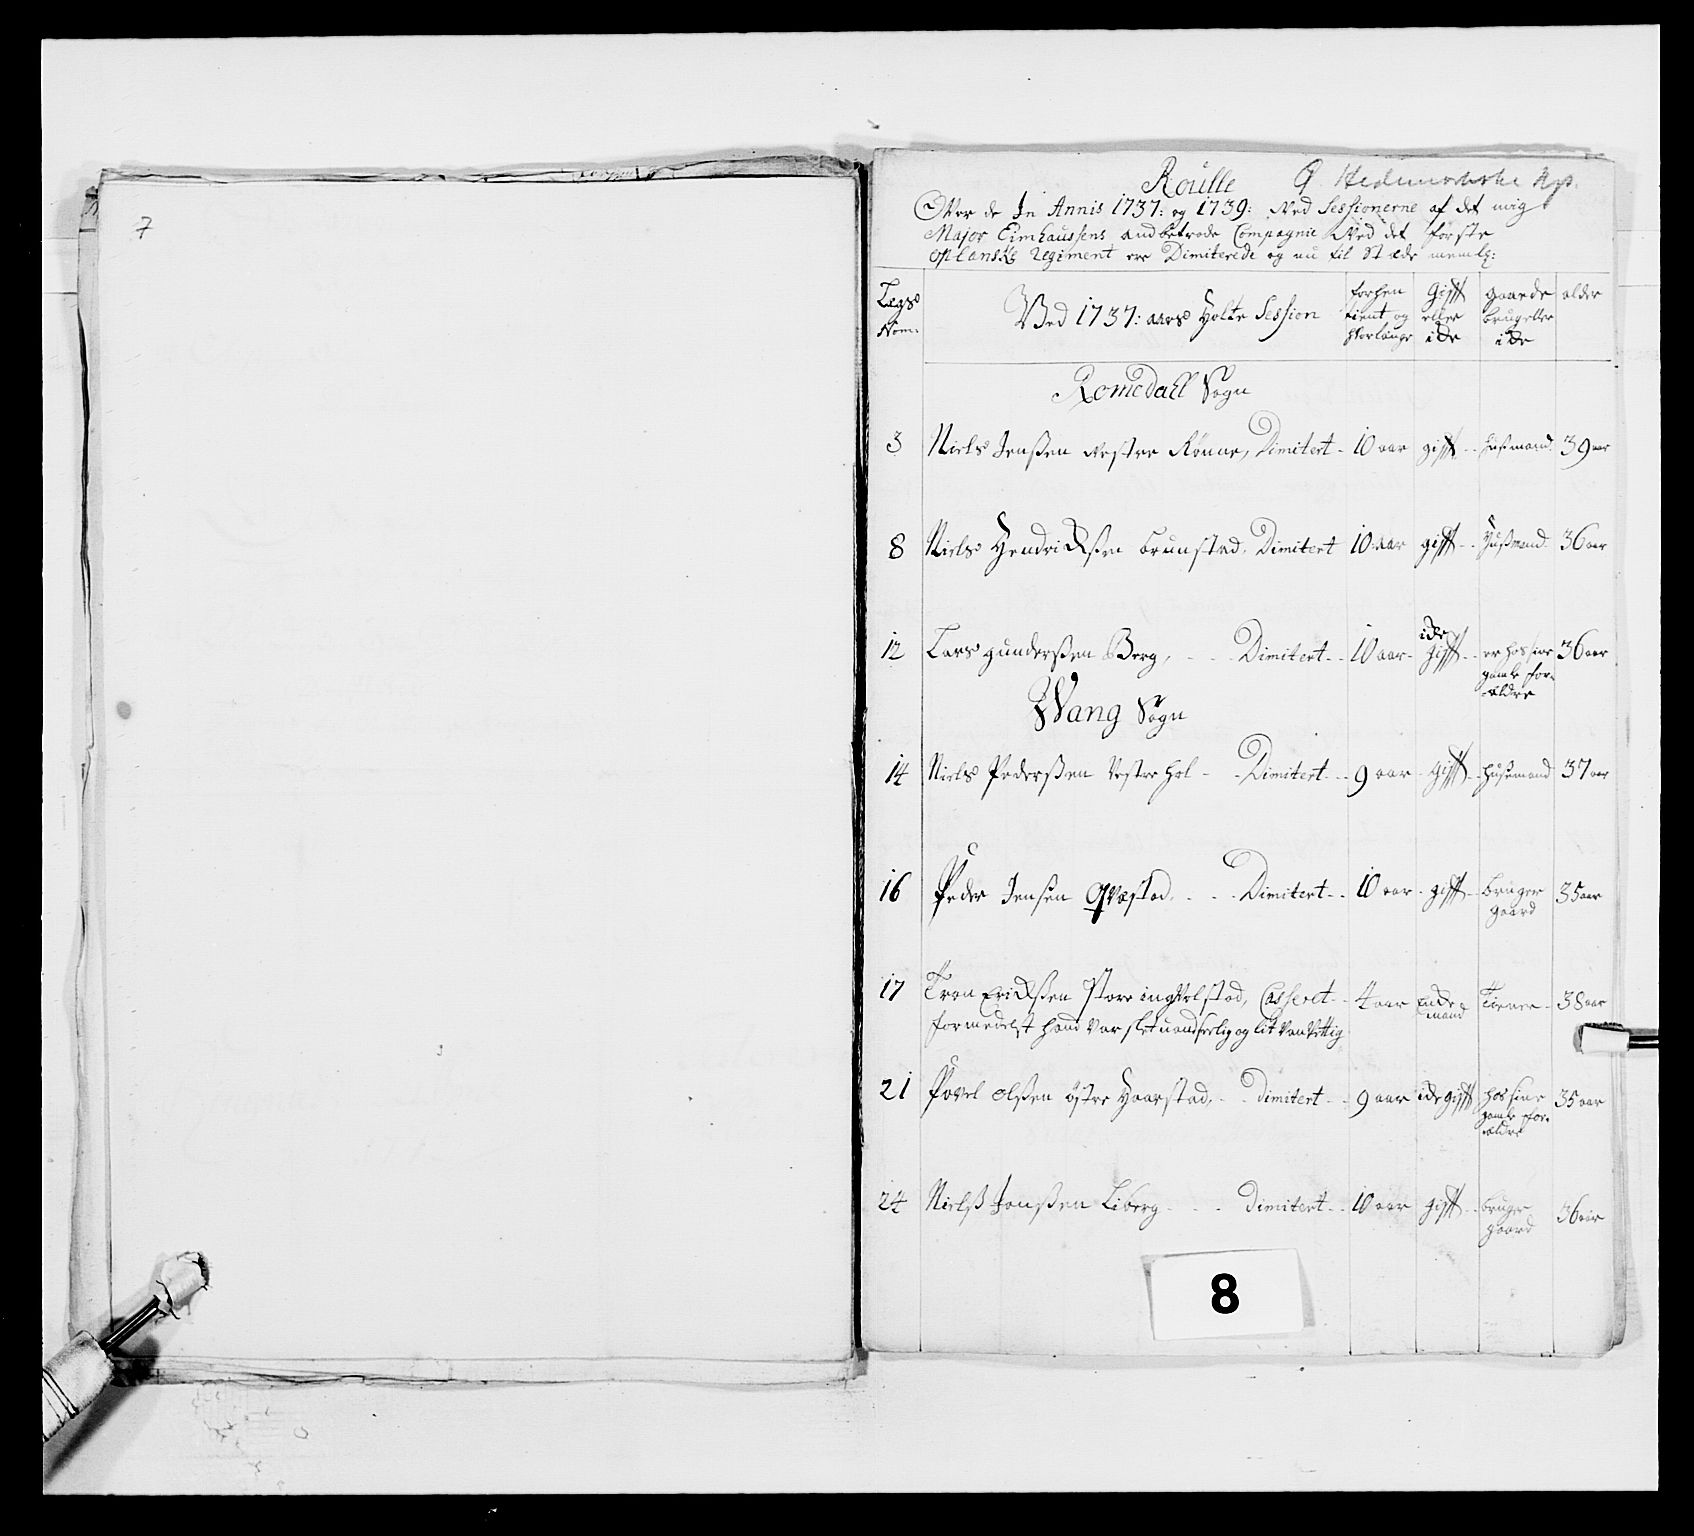 7
Roulle
Over de In Annis 1737: og 1739: Ved Sessionerne af det mig
Major Eimhaussens anbetrode Compagnie Ved det første
Oplanske Regiment ere Dimiterede og nu til Stæde nemlg:
Legs Nom:
Ved 1737: aars Holte Session
forhen tient og hvorlænge
Gifft eller icke
gaarde brug eller icke
alder
Romedall Sogn
3 Niels Jenßen Vestre Rønne, Dimitert - 10 aar gifft - husmand 39 aar
8 Niels Hendrickßen brunstad, Dimitert 10 aar gifft - Husmand 36 aar
12 Lars gunderßen Berg, - - Dimitert - 10 aar - icke gifft - er hos sine gamle forældre 36 aar
Wang Sogn
14 Niels Pederßen Vestre hol - Dimitert - 9 aar - gifft - husmand 37 aar
16 Peder Jensen Qvæstad - - Dimitert - 10 aar - gifft - bruger gaard 35 aar
17 Tron Erickßen Store ingvelstad, Casseret - 4 aar Encke mand Tiener - 38 aar
formedelst hand var slet uandseelig og lit Vanvettig
21 Povel olßen østre Haarstad, - dimitert - 9 aar icke gifft hos sine gamle forældre 35 aar
24 Nielß Jonßen Liberg - - dimitert - 10 aar gifft - bruger gaard 36 aar
8